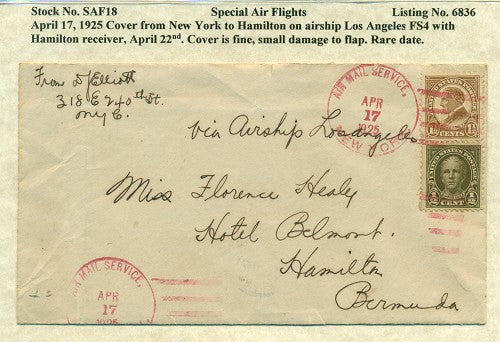 Stock No. SAF18 Special Air Flights Listing No. 6836
April 17, 1925 Cover from New York to Hamilton on airship Los Angeles FS4 with
Hamilton receiver, April 22nd. Cover is fine, small damage to flap. Rare date.
From D Elliott
318 E 240th St.
NYC.
AIR MAIL SERVICE,
APR
17
1925
NEW YORK
UNITED STATES POSTAGE
1½ CENTS 1½
via Airship Los Angeles
½ CENT ½
Miss Florence Healy
Hotel Belmont.
Hamilton
Bermuda
AIR MAIL SERVICE,
APR
17
1925